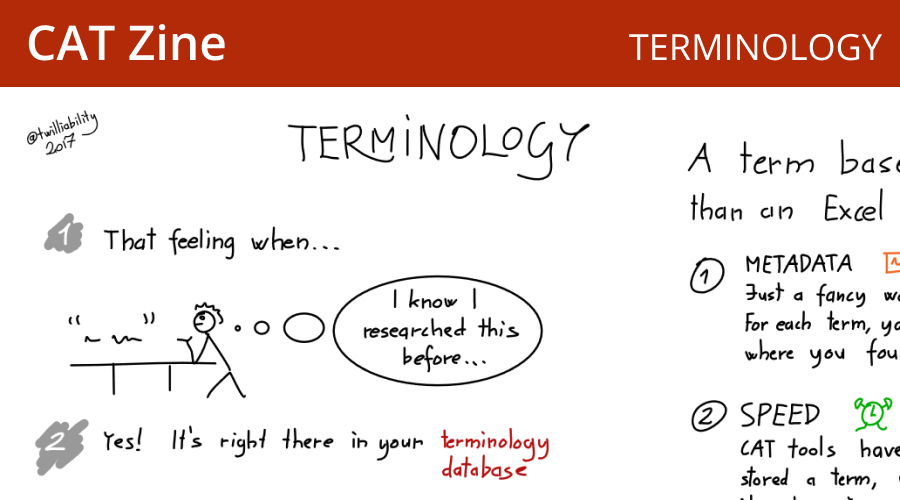 CAT Zine
TERMINOLOGY
@twilliability
2017
TERMINOLOGY
1 That feeling when...
" "
I know I
researched this
before...
2 Yes! It's right there in your terminology
database
A term base
than an Excel
1 METADATA
Just a fancy
For each term,
where you
2 SPEED
CAT tools have
stored a term,